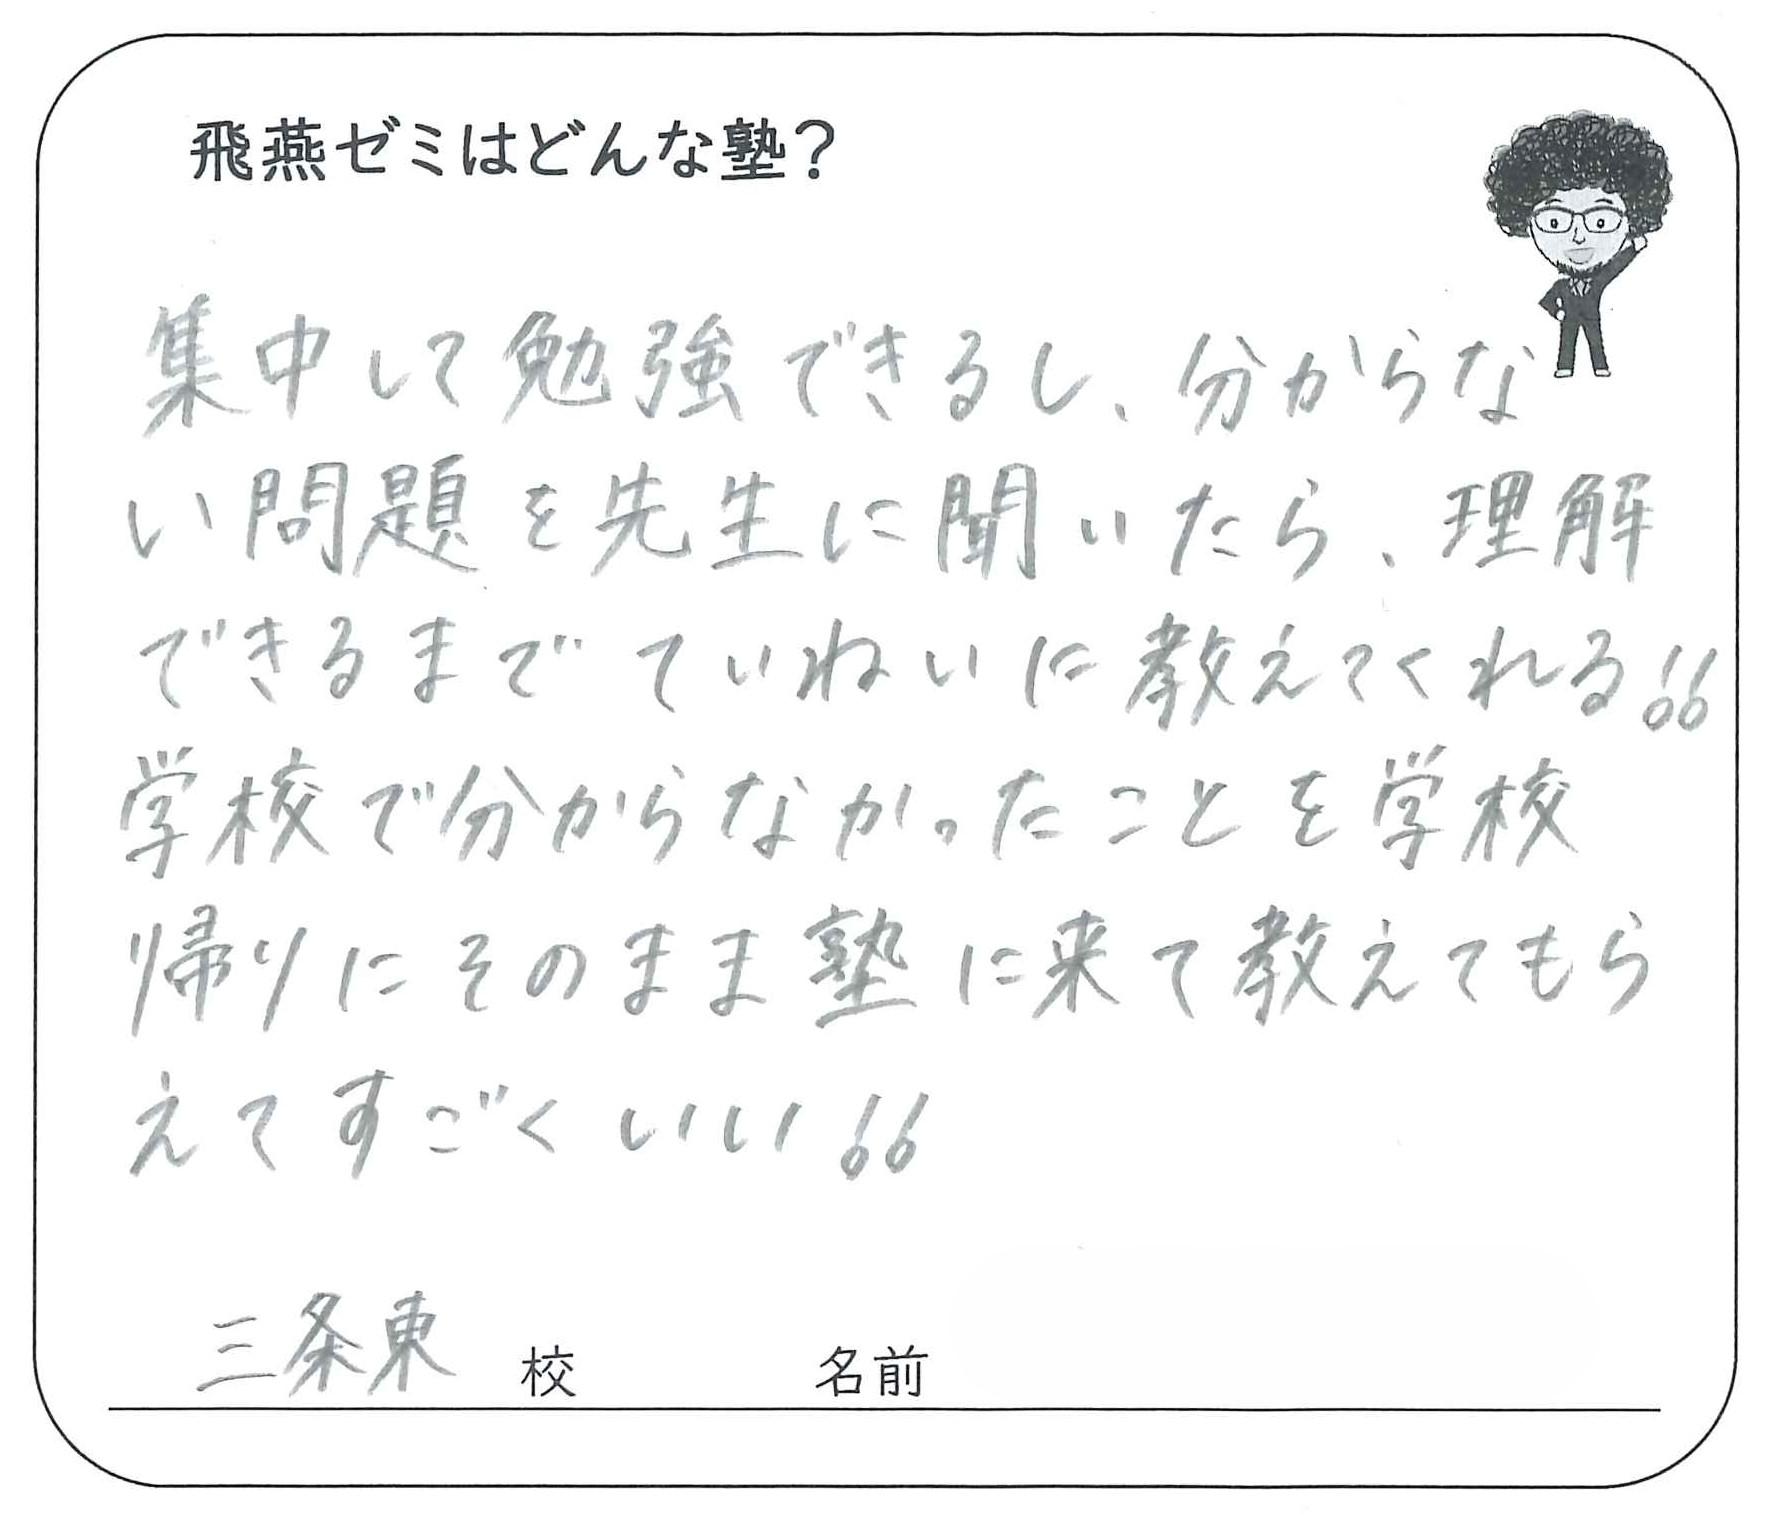 飛燕ゼミはどんな塾？
集中して勉強できるし、分からな
い問題を先生に聞いたら、理解
できるまでていねいに教えてくれる!!
学校で分からなかったことを学校
帰りにそのまま塾に来て教えてもら
えてすごくいい!!
三条東 校 名前